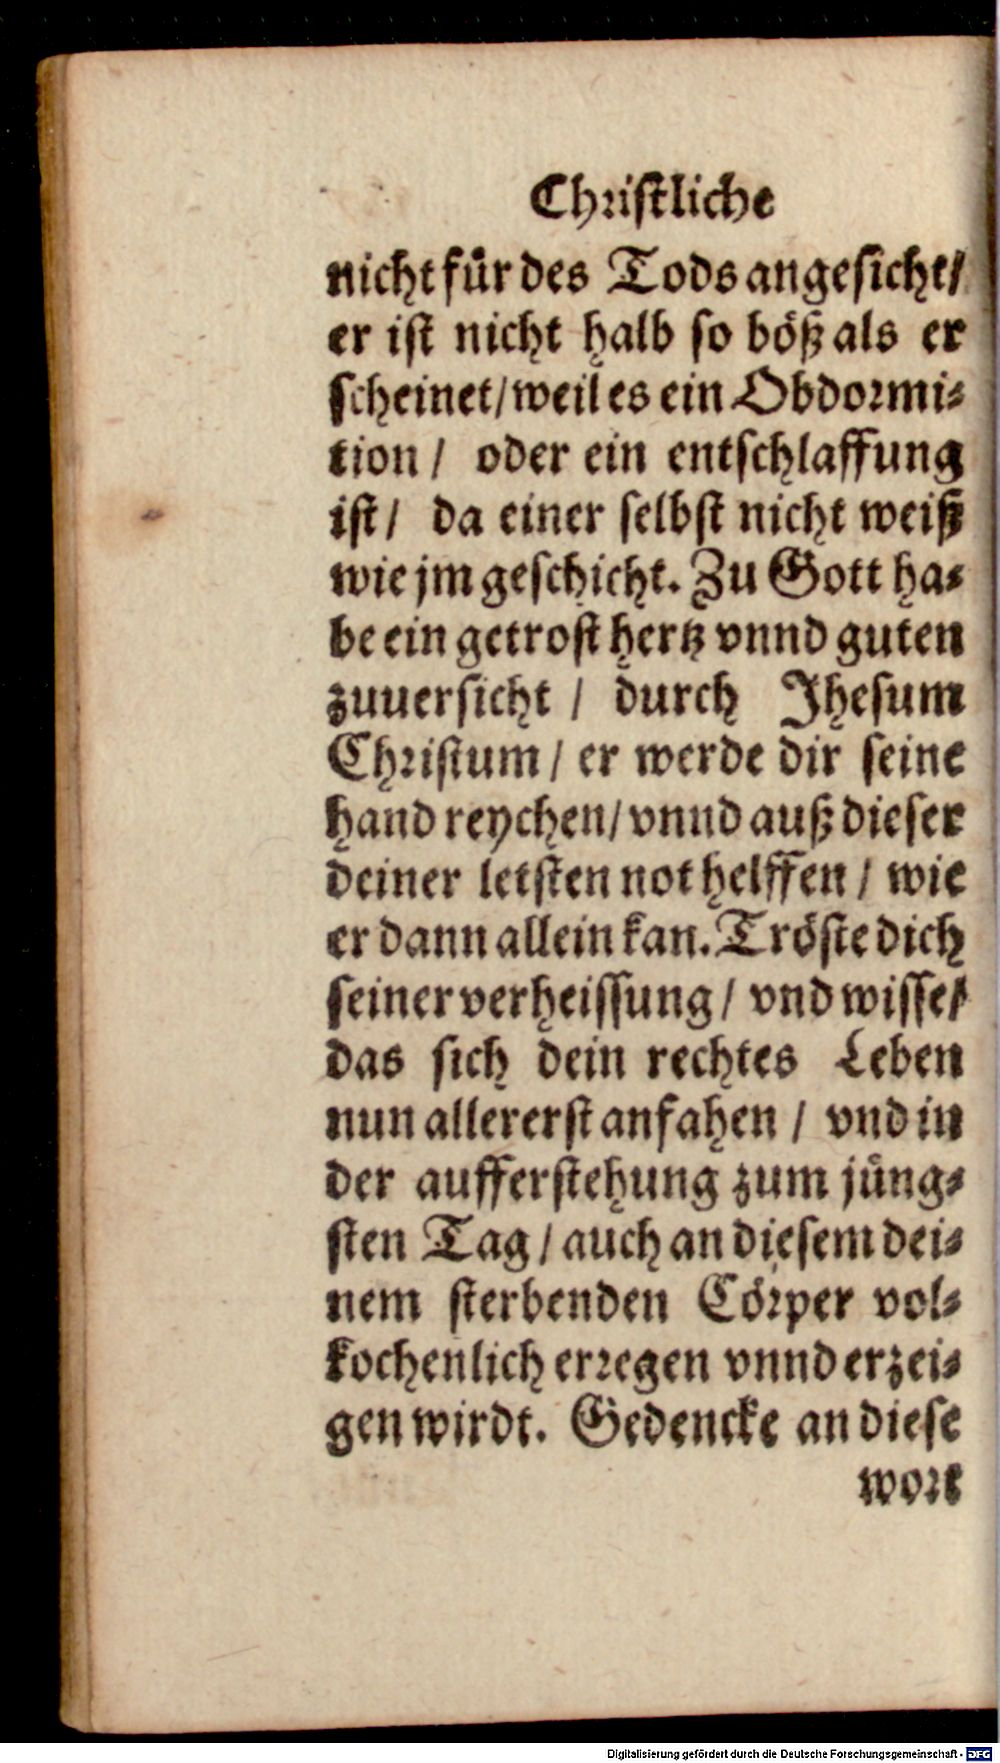 Christliche
nicht für des Tods angesicht/
er ist nicht halb so böß als er
scheinet/ weil es ein Obdormi-
tion / oder ein entschlaffung
ist / da einer selbst nicht weiß
wie jm geschicht. Zu Gott ha-
be ein getrost hertz vnnd guten
zuuersicht / durch Jhesum
Christum / er werde dir seine
hand reychen/ vnnd auß dieser
deiner letsten not helffen / wie
er dann allein kan. Tröste dich
seiner verheissung / vnd wisse/
das sich dein rechtes Leben
nun allererst anfahen / vnd in
der aufferstehung zum jüng-
sten Tag / auch an diesem dei-
nem sterbenden Cörper vol-
kochenlich erregen vnnd erzei-
gen wirdt. Gedencke an diese
wort
Digitalisierung gefördert durch die Deutsche Forschungsgemeinschaft - DFG